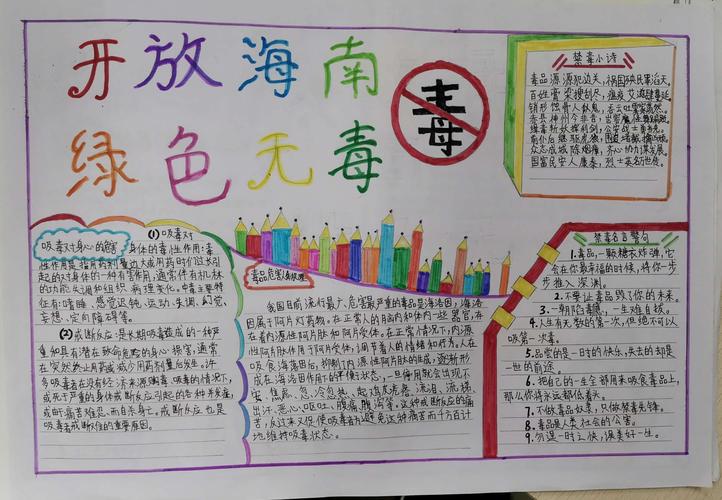 开放海南
绿色无毒
毒
禁毒小诗
毒品源源犯边关，祸国殃民罪滔天。
百姓膏染搜刮尽，瘟疫艾滋肆蔓延
销形蚀骨人似鬼，吞云吐雾
赤县神州今非昔，岂容魔
缉毒斩妖挥利剑，公安战士勇争先
前仆后继驱虎狼
众志成城除烟瘴，齐心协力谋发展
国富民安人康泰，烈士英名万世传。
吸毒对身心的危害
(1)吸毒对
身体的毒性作用：毒
性作用是指用药剂量过大或用药时间过长引
起的对身体的一种有害作用，通常伴有机体
的功能失调和组织病理变化。中毒主要特
征有：嗜睡、感觉迟钝、运动失调、幻觉、
妄想、定向障碍等。
(2)戒断反应：是长期吸毒造成的一种严
重和具有潜在致命危险的身心损害，通常
在突然终止用药或减少用药剂量后发生。许
多吸毒者在没有经济来源购毒、吸毒的情况下，
或死于严重的身体戒断反应引起的各种并发症，
或由于痛苦难忍而自杀身亡。戒断反应也是
吸毒者戒断难的重要原因。
毒品危害人体机理
我国目前流行最广、危害最严重的毒品是海洛因，海洛
因属于阿片灯药物。在正常人的脑内和体内一些器官，存
在着内源性阿片肽和阿片受体。在正常情况下，内源
性阿片肽作用于阿片受体，调节着人的情绪和行为。人在
吸食海洛因后，抑制了内源性阿片肽的生成，逐渐形
成在海洛因作用下的平衡状态，一旦停用就会出现不
安、焦虑、忽冷忽热、起鸡皮疙瘩、流泪、流涕、
出汗、恶心、呕吐、腹痛、腹泻等。这种戒断反应的痛
苦，反过来又促使吸毒者为避免这种痛苦而千方百计
地维持吸毒状态。
禁毒名言警句
1.毒品，一颗糖衣炸弹，它
会在你最幸福的时候，将你一步
步推入深渊。
2.不要让毒品毁了你的未来。
3.一朝陷毒瘾，一生难自拔。
4.人生有无数的第一次，但绝不可以
吸第一次毒。
5.品尝的是一时的快乐，失去的却是
一世的前途。
6.把自己的一生全部用来吸食毒品上，
那么你将永远都低着头。
7.不做毒品奴隶，只做禁毒先锋。
8.毒品是人类社会的公害。
9.勿逞一时之快，误美好一生。